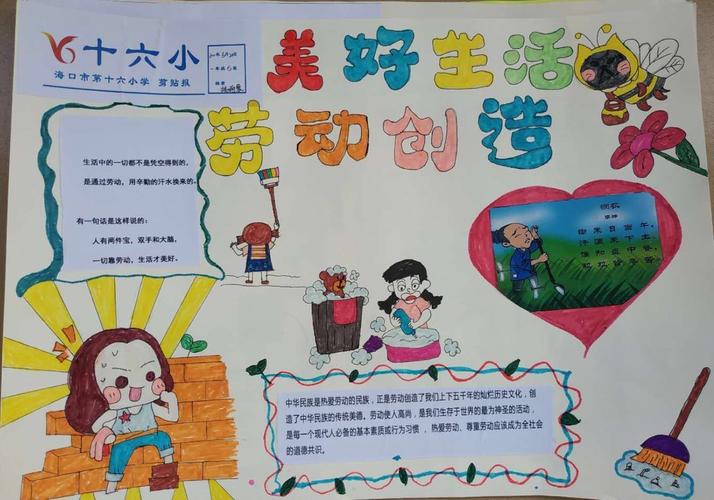 十六小
海口市第十六小学 剪贴报
美好生活
劳动创造
生活中的一切都不是凭空得到的,
是通过劳动，用辛勤的汗水换来的。
有一句话是这样说的：
人有两件宝，双手和大脑，
一切靠劳动，生活才美好。
悯农
李绅
锄禾日当午，
汗滴禾下土。
谁知盘中餐，
粒粒皆辛苦。
中华民族是热爱劳动的民族，正是劳动创造了我们上下五千年的灿烂历史文化，创
造了中华民族的传统美德。劳动使人高尚，是我们生存于世界的最为神圣的活动，
是每一个现代人必备的基本素质或行为习惯 ，热爱劳动、尊重劳动应该成为全社会
的道德共识。